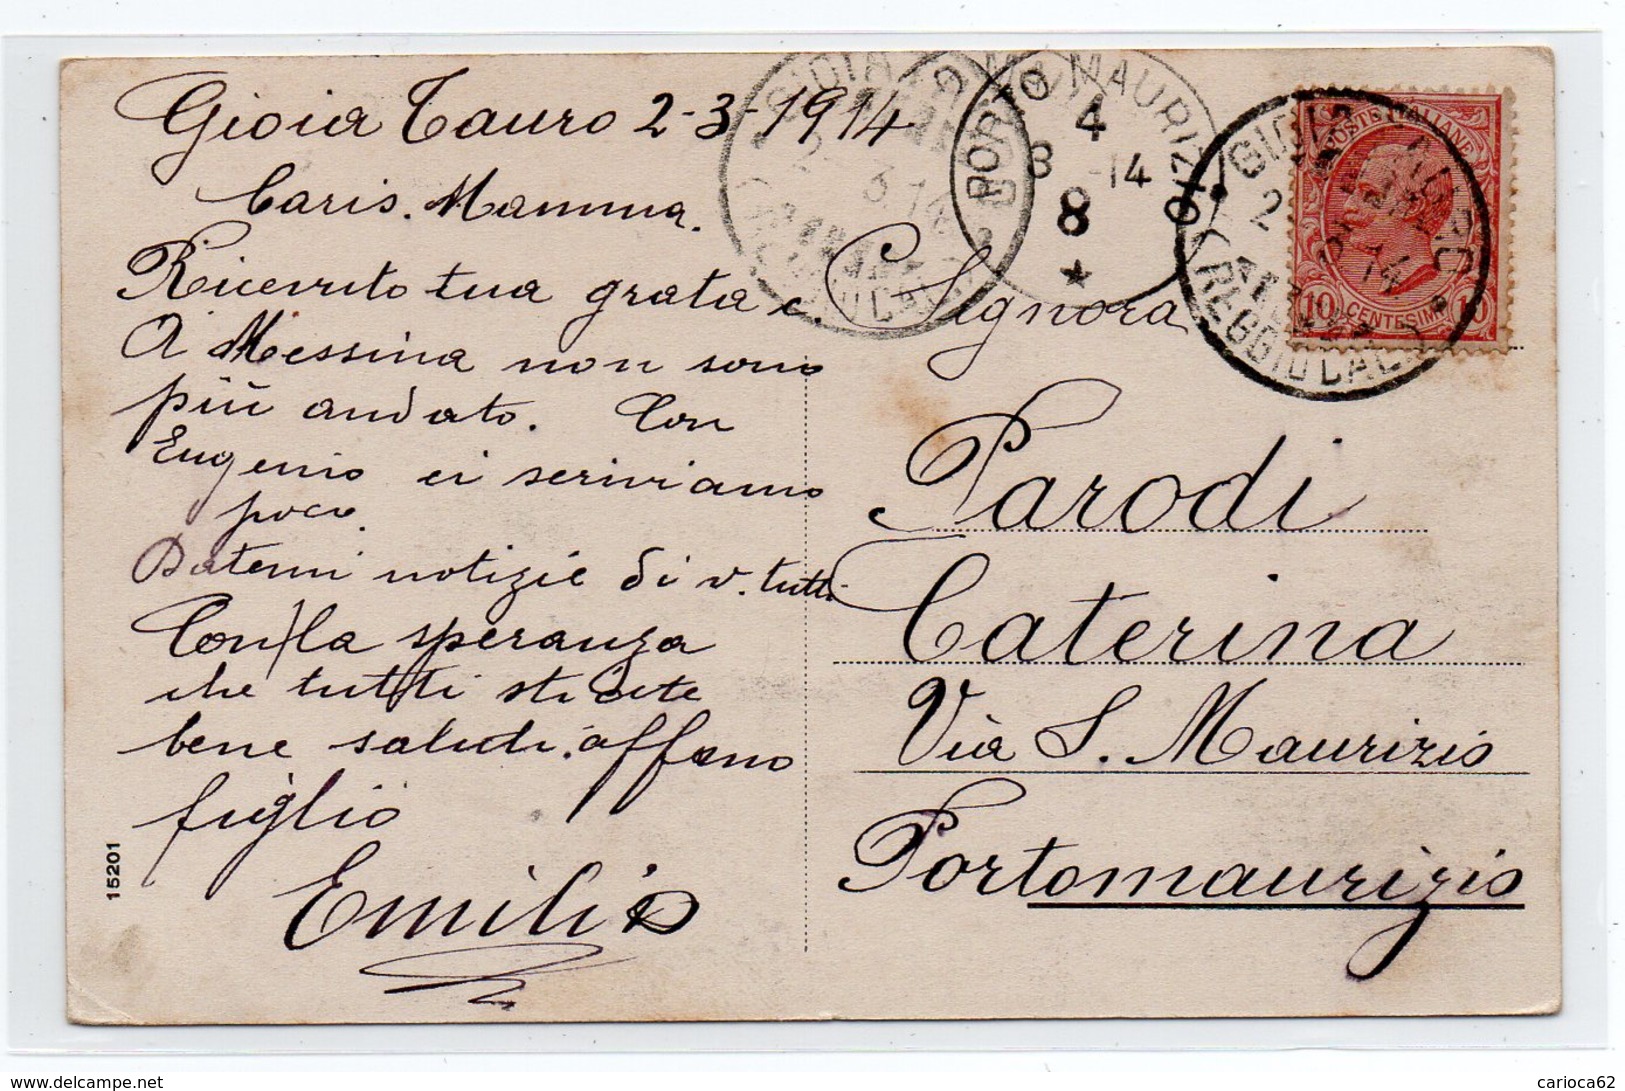 Gioia Tauro 2-3-1914
Caris. Mamma.
Ricevuto tua grata c.
A Messina non sono
più andato. Con
Eugenio ci scriviamo
poco.
Datemi notizie di v. tutti
Con la speranza
che tutti stiate
bene saluti. affemo
figlio
Emilio
15201
Signora
Parodi
Caterina
Via S. Maurizio
Portomaurizio
PORTO MAURIZIO
4
3 -14
8
GIOIA TAURO
2
REGGIO CAL
POSTE ITALIANE
10 CENTESIMI 10
www.delcampe.net
carioca62